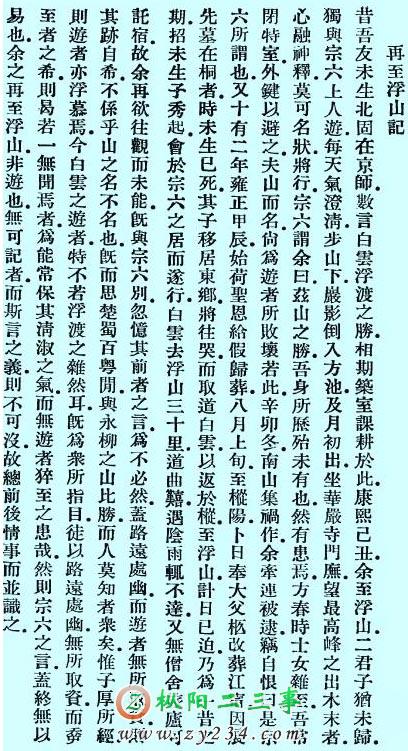 再至浮山記
昔吾友未生北固在京師數言白雲浮渡之勝相期築室課耕於此康熙己丑余至浮山二君子猶未歸
獨與宗六上人遊每天氣澄清步山下巖影倒入方池及月初出坐華嚴寺門廡望最高峰之出木末者
心融神釋莫可名狀將行宗六謂余曰茲山之勝吾身所歷殆未有也然有患焉方春時士女雜至吾常
閉特室外鍵以避之夫山而名尙爲遊者所敗壞若此辛卯冬南山集禍作余牽連被逮竊自恨曰是宗
六所謂也又十有二年雍正甲辰始荷聖恩給假歸葬八月上旬至樅陽卜日奉大父柩改葬江寧因展
先墓在桐者時未生已死其子移居東鄉將往哭而取道白雲以返於樅至浮山計日已迫乃爲一昔之
期招未生子秀起會於宗六之居而遂行白雲去浮山三十里道曲囏遇陰雨輒不達又無僧舍旅廬可
託宿故余再欲往觀而未能旣與宗六別忽憶其前者之言爲不必然蓋路遠處幽而遊者無所取資則
其跡自希不係乎山之名不名也旣而思楚蜀百粤閒與永柳之山比勝而人莫知者衆矣惟子厚所經
則遊者亦浮慕焉今白雲之遊者特不若浮渡之雜然耳旣爲衆所指目徒以路遠處幽無所取資而幸
至者之希則曷若一無聞焉者爲能常保其清淑之氣而無遊者猝至之患哉然則宗六之言蓋終無以
易也余之再至浮山非遊也無可記者而斯言之義則不可沒故總前後情事而並識之
枞阳二三事
www.zy234.com